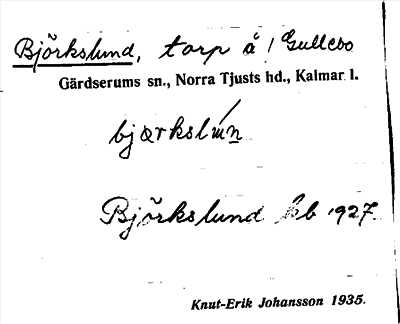 Björkslund, torp å 1 Gullebo
Gärdserums sn., Norra Tjusts hd., Kalmar l.
Björkslund kb 1927.
Knut-Erik Johansson 1935.